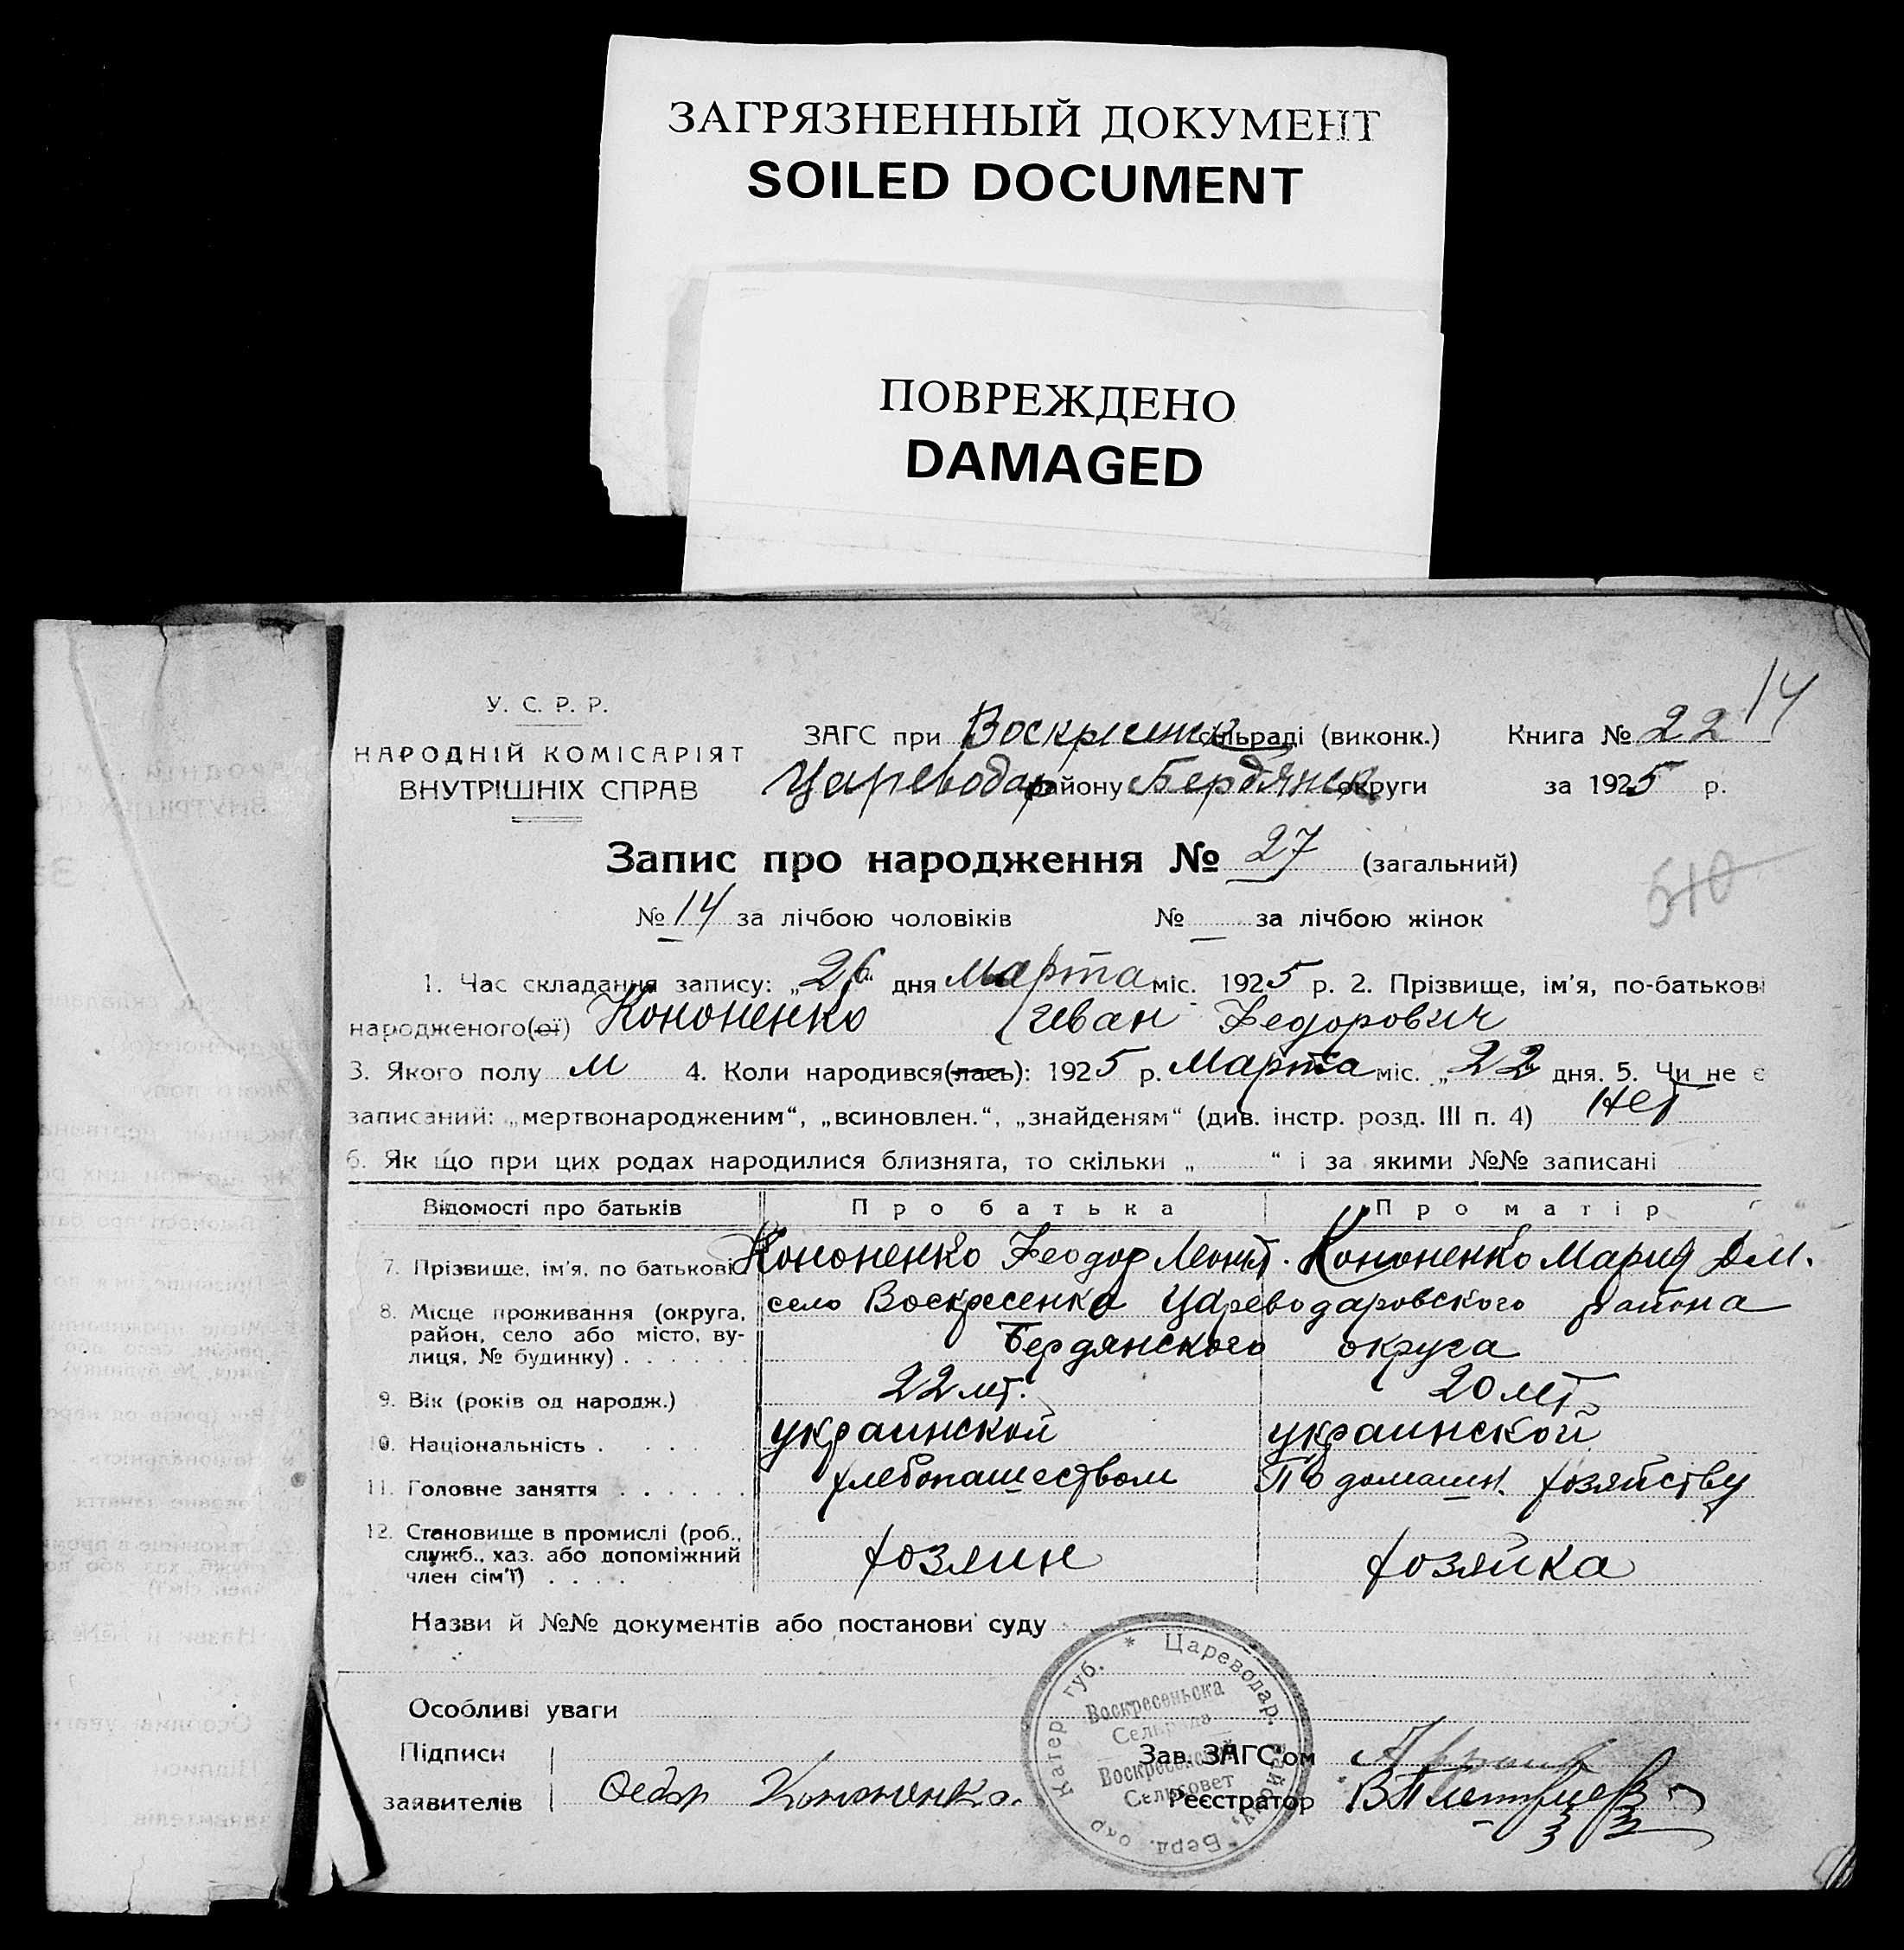 ЗАГРЯЗНЕННЫЙ ДОКУМЕНТ
SOILED DOCUMENT
ПОВРЕЖДЕНО
DAMAGED
14
У. С. Р. Р.
НАРОДНІЙ КОМІСАРІЯТ
ВНУТРІШНІХ СПРАВ
ЗАГС при Воскресенск сільраді (виконк.) Книга № 22
Цареводар району Бердянск округи за 1925 р.
Запис про народження № 27 (загальний)
510
№ 14 за лічбою чоловіків № — за лічбою жінок
1. Час складання запису: „26“ дня Марта міс. 1925 р. 2. Прізвище, ім'я, по-батькові
народженого(ої) Кононенко Иван Федорович
3. Якого полу М 4. Коли народився(лась): 1925 р. Марта міс. „22 дня. 5. Чи не є
записаний: „мертвонародженим“, „всиновлен.“, „знайденям“ (див. інстр. розд. III п. 4) Нет
6. Як що при цих родах народилися близнята, то скільки „ “ і за якими №№ записані
Відомості про батьків Про батька Про матір
7. Прізвище, ім'я, по батькові Кононенко Феодор Леонт. Кононенко Мария Дм.
8. Місце проживання (округа, район, село або місто, вулиця, № будинку) село Воскресенка Цареводаровского района
Бердянского округа
9. Вік (років од народж.) 22 лет. 20 лет
10. Національність украинской украинской
11. Головне заняття хлебопашеством По домашн. хозяйству
12. Становище в промислі (роб., служб., хаз. або допоміжний член сім'ї) хозяин хозяйка
Назви й №№ документів або постанови суду
Особливі уваги
Підписи
заявителів Федор Кононенко.
Зав. ЗАГС'ом
Реєстратор
* Цареводар. району, Берд. окр Катер губ.
Воскресеньска
Сельрада
Воскресенский
Сельсовет